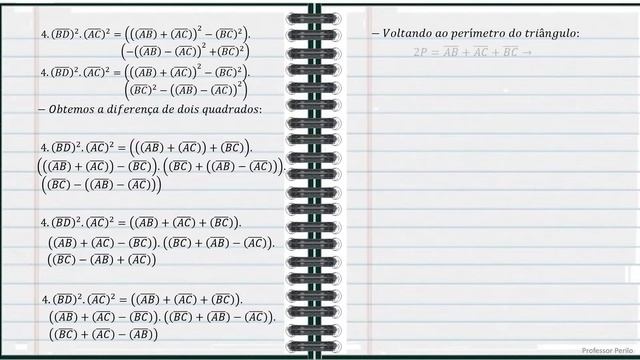 4.(B̅D̅)².(A̅C̅)² = (((A̅B̅) + (A̅C̅))² − (B̅C̅)²).
(−((A̅B̅) − (A̅C̅))² +(B̅C̅)²)
4.(B̅D̅)².(A̅C̅)² = (((A̅B̅) + (A̅C̅))² − (B̅C̅)²).
((B̅C̅)² − ((A̅B̅) − (A̅C̅))²)
− Obtemos a diferença de dois quadrados:
4.(B̅D̅)².(A̅C̅)² = (((A̅B̅) + (A̅C̅)) + (B̅C̅)).
(((A̅B̅) + (A̅C̅)) − (B̅C̅)).((B̅C̅) + ((A̅B̅) − (A̅C̅))).
((B̅C̅) − ((A̅B̅) − (A̅C̅)))
4.(B̅D̅)².(A̅C̅)² = ((A̅B̅) + (A̅C̅) + (B̅C̅)).
((A̅B̅) + (A̅C̅) − (B̅C̅)).((B̅C̅) + (A̅B̅) − (A̅C̅)).
((B̅C̅) − (A̅B̅) + (A̅C̅))
4.(B̅D̅)².(A̅C̅)² = ((A̅B̅) + (A̅C̅) + (B̅C̅)).
((A̅B̅) + (A̅C̅) − (B̅C̅)).((B̅C̅) + (A̅B̅) − (A̅C̅)).
((B̅C̅) + (A̅C̅) − (A̅B̅))
− Voltando ao perímetro do triângulo:
2P = A̅B̅ + A̅C̅ + B̅C̅ →
Professor Perilo